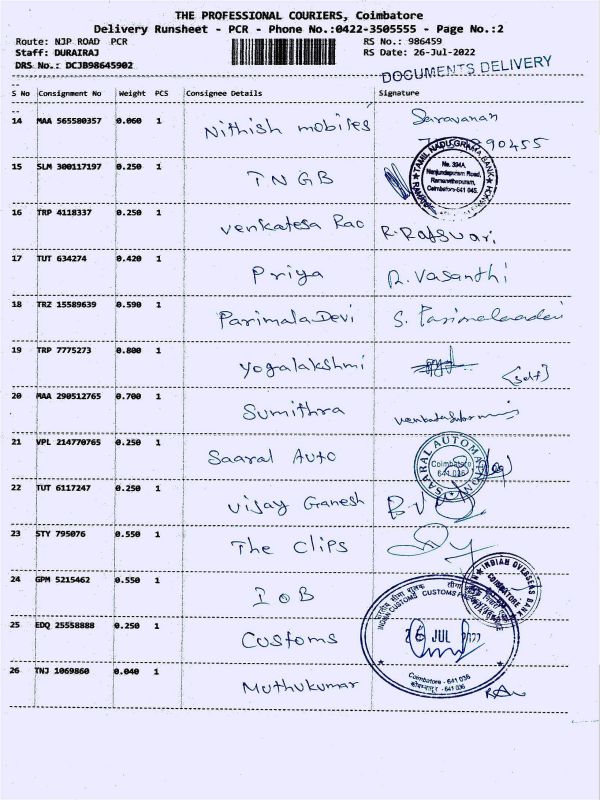 THE PROFESSIONAL COURIERS, Coimbatore
Delivery Runsheet - PCR - Phone No.:0422-3505555 - Page No.:2
Route: NJP ROAD PCR RS No.: 986459
Staff: DURAIRAJ RS Date: 26-Jul-2022
DRS No.: DCJB98645902 DOCUMENTS DELIVERY
S No Consignment No Weight PCS Consignee Details Signature
14 MAA 565580357 0.060 1 Nithish mobiles Saravanan
90455
15 SLM 300117197 0.250 1 TNGB
TAMIL NADU GRAMA BANK
No. 394A,
Nanjundapuram Road,
Ramanathapuram,
Coimbatore-641 045.
16 TRP 4118337 0.250 1 Venkatesa Rao R. Rajswari
17 TUT 634274 0.420 1 Priya R. Vasanthi
18 TRZ 15589639 0.590 1 Parimala Devi S. Parimalaadevi
19 TRP 7775273 0.800 1 Yogalakshmi
[self]
20 MAA 290512765 0.700 1 Sumithra
21 VPL 214770765 0.250 1 Saaral Auto
SAARAL AUTOMATION
Coimbatore
641 036
22 TUT 6117247 0.250 1 Vijay Ganesh
23 STY 795076 0.550 1 The Clips
24 GPM 5215462 0.550 1 IOB
INDIAN OVERSEAS BANK
COIMBATORE
25 EDQ 25558888 0.250 1 Customs
INDIAN CUSTOMS
26 JUL 2022
Coimbatore - 641 036
26 TNJ 1069860 0.040 1 Muthukumar